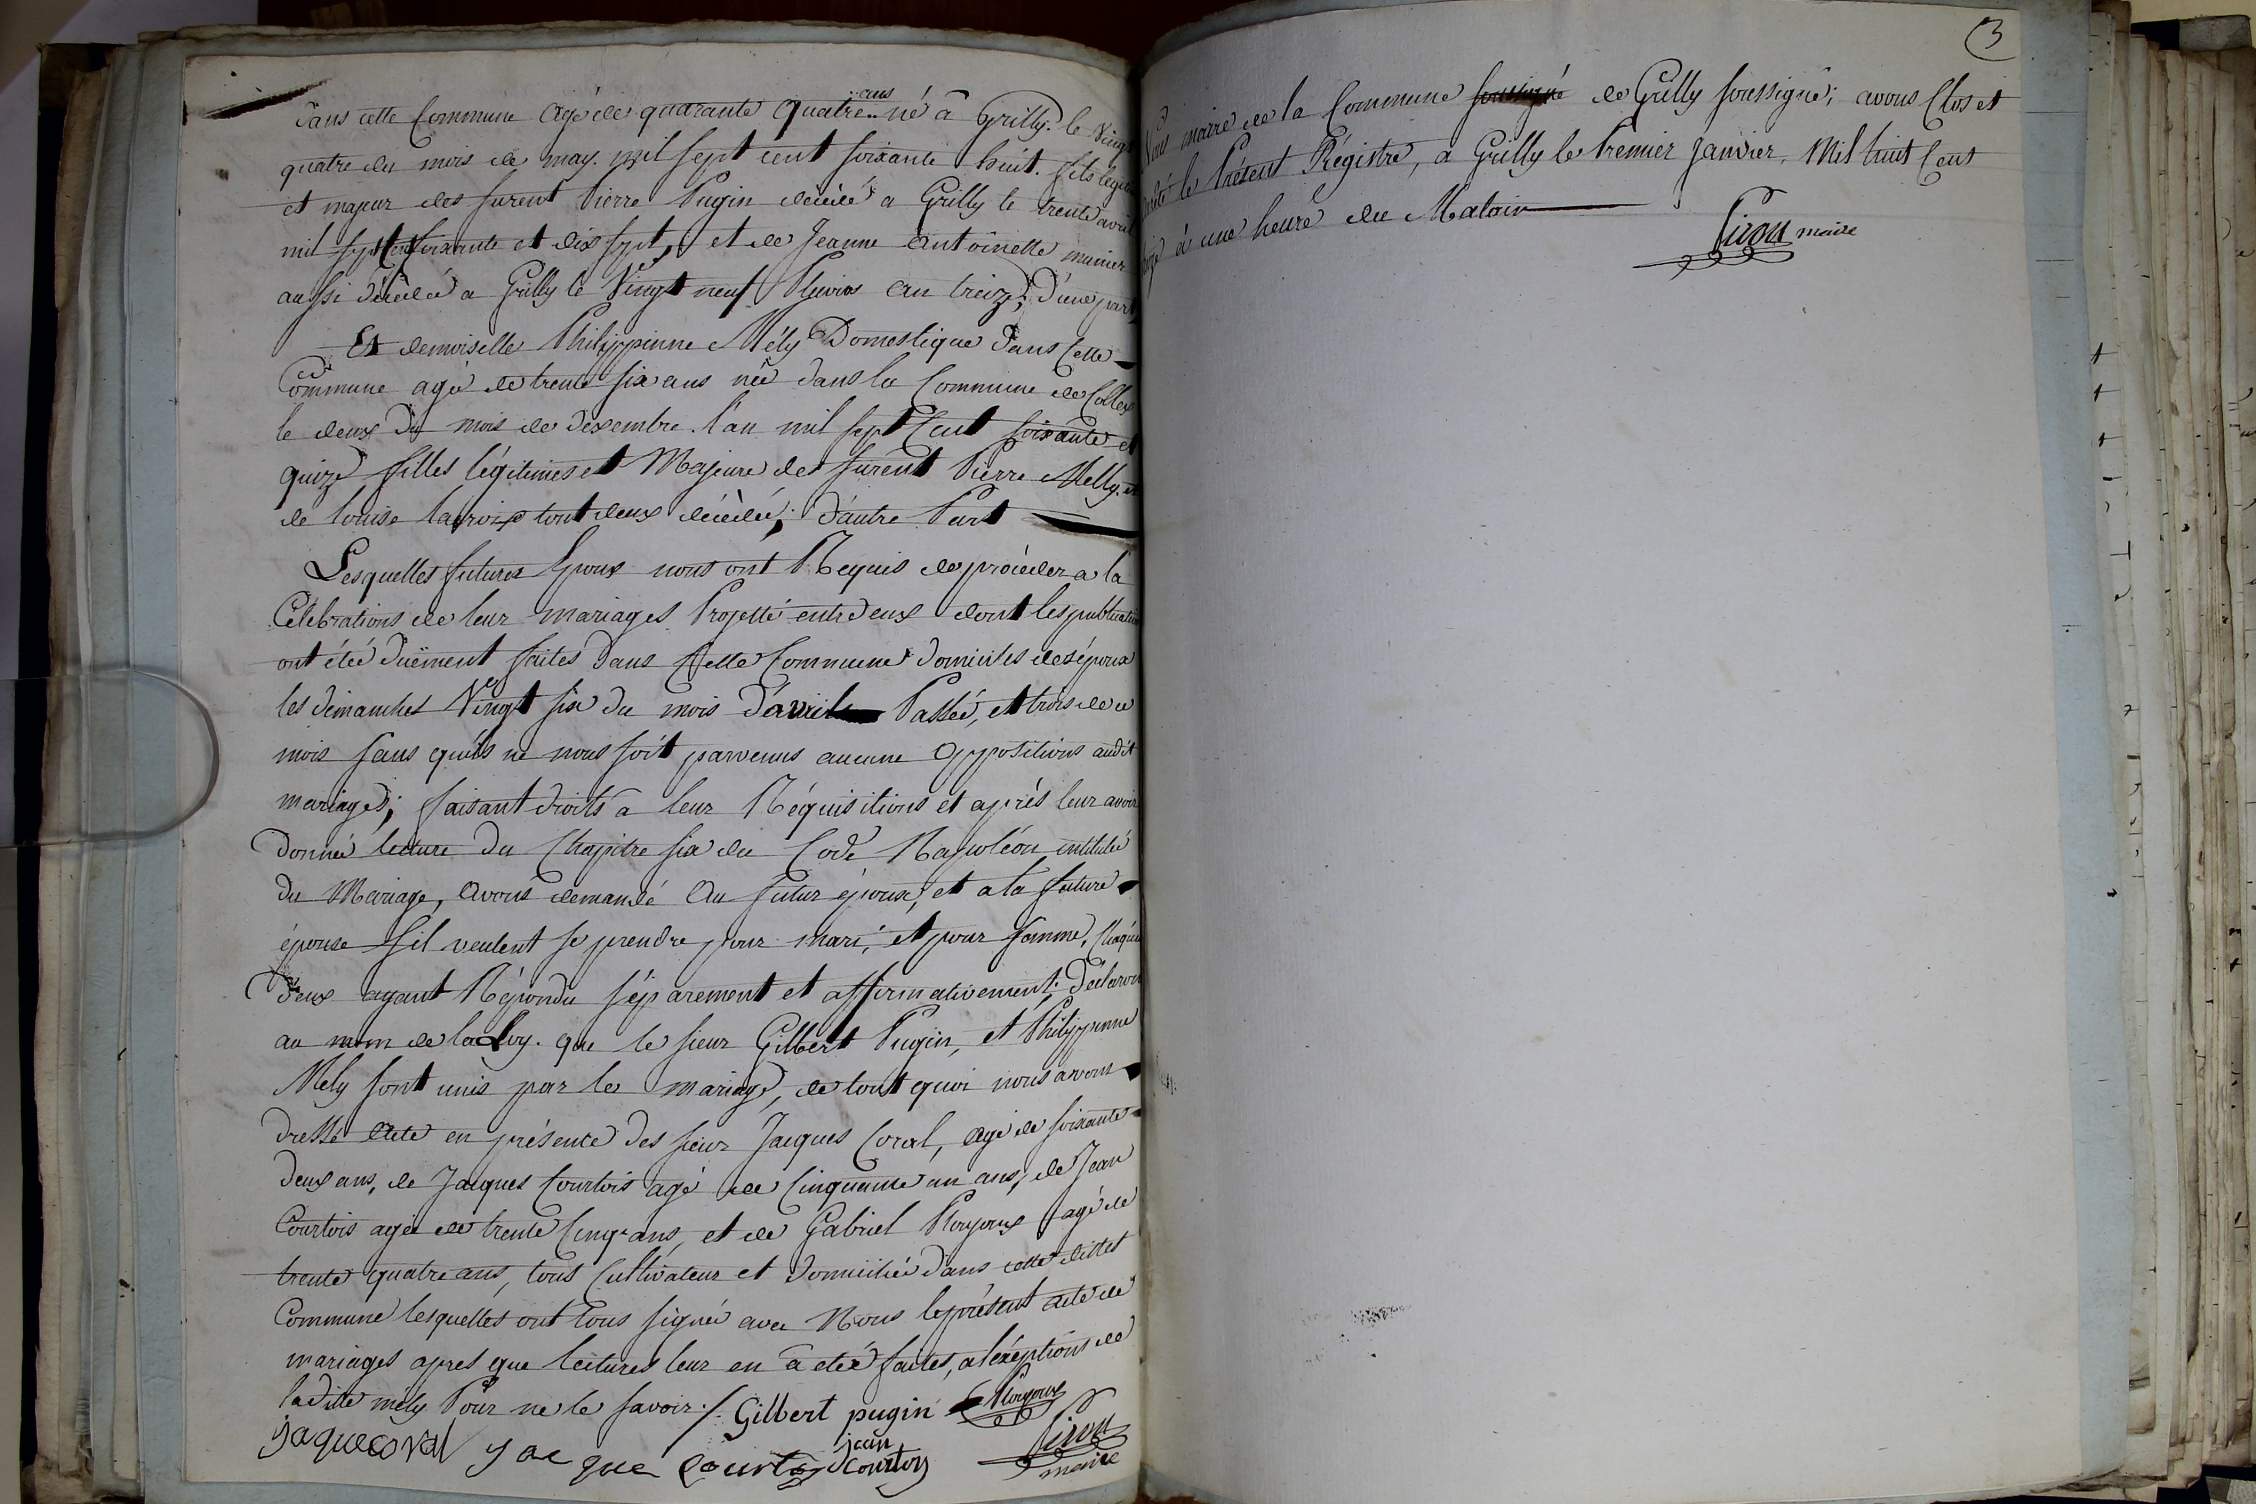 dans cette Commune agé de quarante quatre ans né à Grilly. le Vingt
quatre du mois de may. mil sept cent soixante huit. fils legitime
et majeur des furent Pierre Pugin décédé a Grilly le trente avril
mil sept cent soixante et dix sept, et de Jeanne antoinette munier
aussi décédéé a Grilly le Vingt neuf Pluvios an treize; d'une part
Et demoiselle Philippinne Mély Domestique dans Cette
Commune agé de trente six ans née dans la Commune de Collex
le deux du mois de dexembre. l'an mil sept Cent soixante et
quize filles légitimes et Majeure des furent Pierre Melly. et
de louise lacroix tout deux décédé; d'autre Part
Lesquelles futures Epoux nous ont Requis de procéder a la
Célébrations de leur mariages Projetté entre deux dont les publications
ont étéé duëment faites dans Cette Commune domiciles des époux
les dimanches Vingt six du mois d'avril Passéé, et trois de ce
mois sans quils ne nous soit parvenus aucune Oppositions audit
mariages; faisant droits a leur Réquisitions et aprés leur avoir
donné lecture du Chapitre six du Code Napoléon intitulé
du Mariage, avons demandé au futur époux, et a la future
épouse sil veulent se prendre pour mari, et pour femme, Chaqun
d'eux ayant Répondu séparement et affirmativement. Déclarons
au nom de la Loy. que le sieur Gilbert Pugin, et Philippinne
Mely sont unis par le mariage, de tout quoi nous avons
dressé acte en présence des sieur Jacques Coval, agé de soixante
deux ans, de Jacques Courtois agé de Cinquante un ans, de Jean
Courtois agé de trente Cinq ans, et de Gabriel Royoux agé de
trente quatre ans, tous Cultivateur et domicilié dans cette dittes
Commune lesquelles ont tous signé avec Nous le présent acte de
mariages apres que lectures leur en a etéé faites, a lexéptions de
ladite mély Pour ne le savoir./. Gilbert pugin Royoux
jaque coval jacque courtois jean courtois Girou maire
3
Nous maire de la Commune soussigné de Grilly soussigné; avons Clos et
arrêté le Présent Régistre, a Grilly le Premier Janvier, Mil huit Cent
treize à une heure du Matain
Girou maire